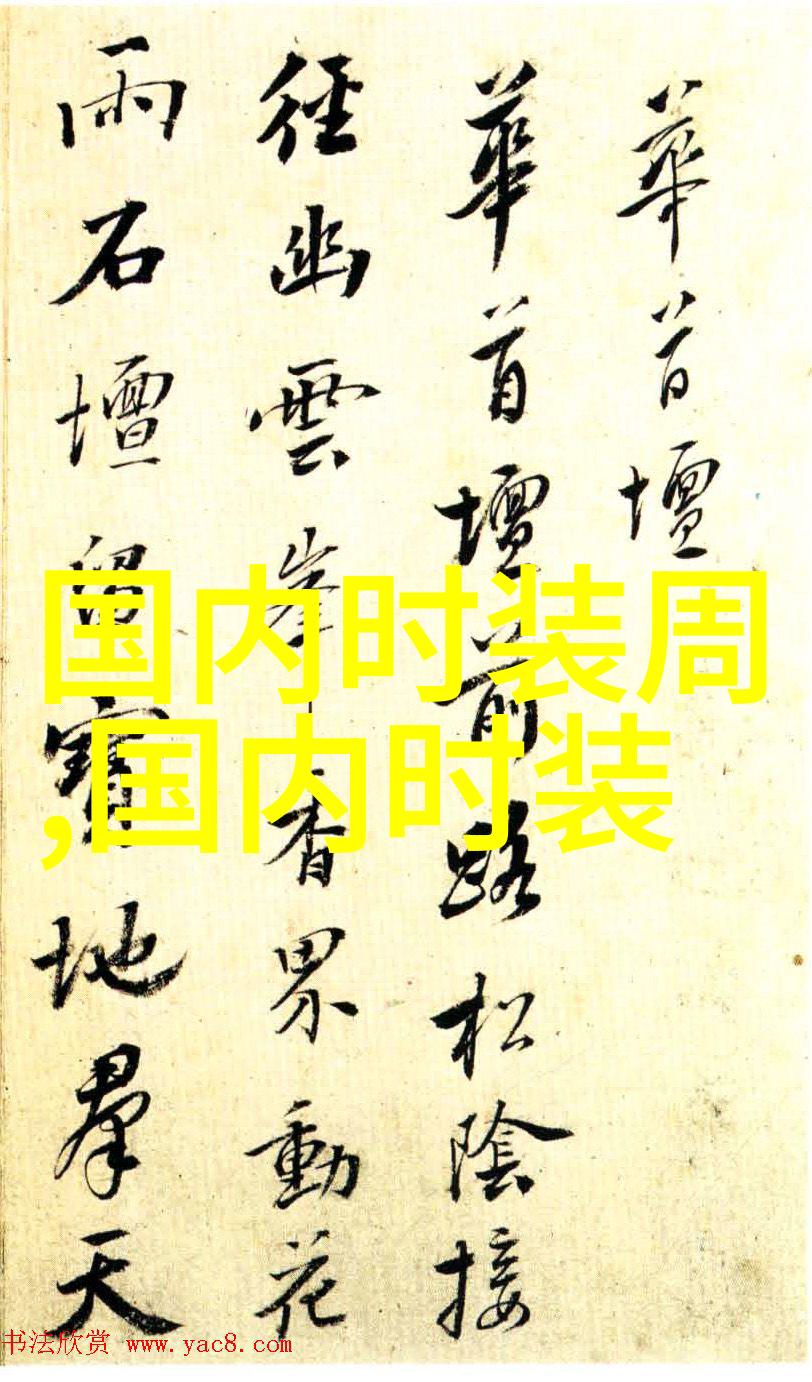 華首壇
華首壇前路松陰接
徑幽雲峯香界動花
雨石壇留寶地羣天
国内时装周
,国内时装
书法欣赏 www.yac8.com